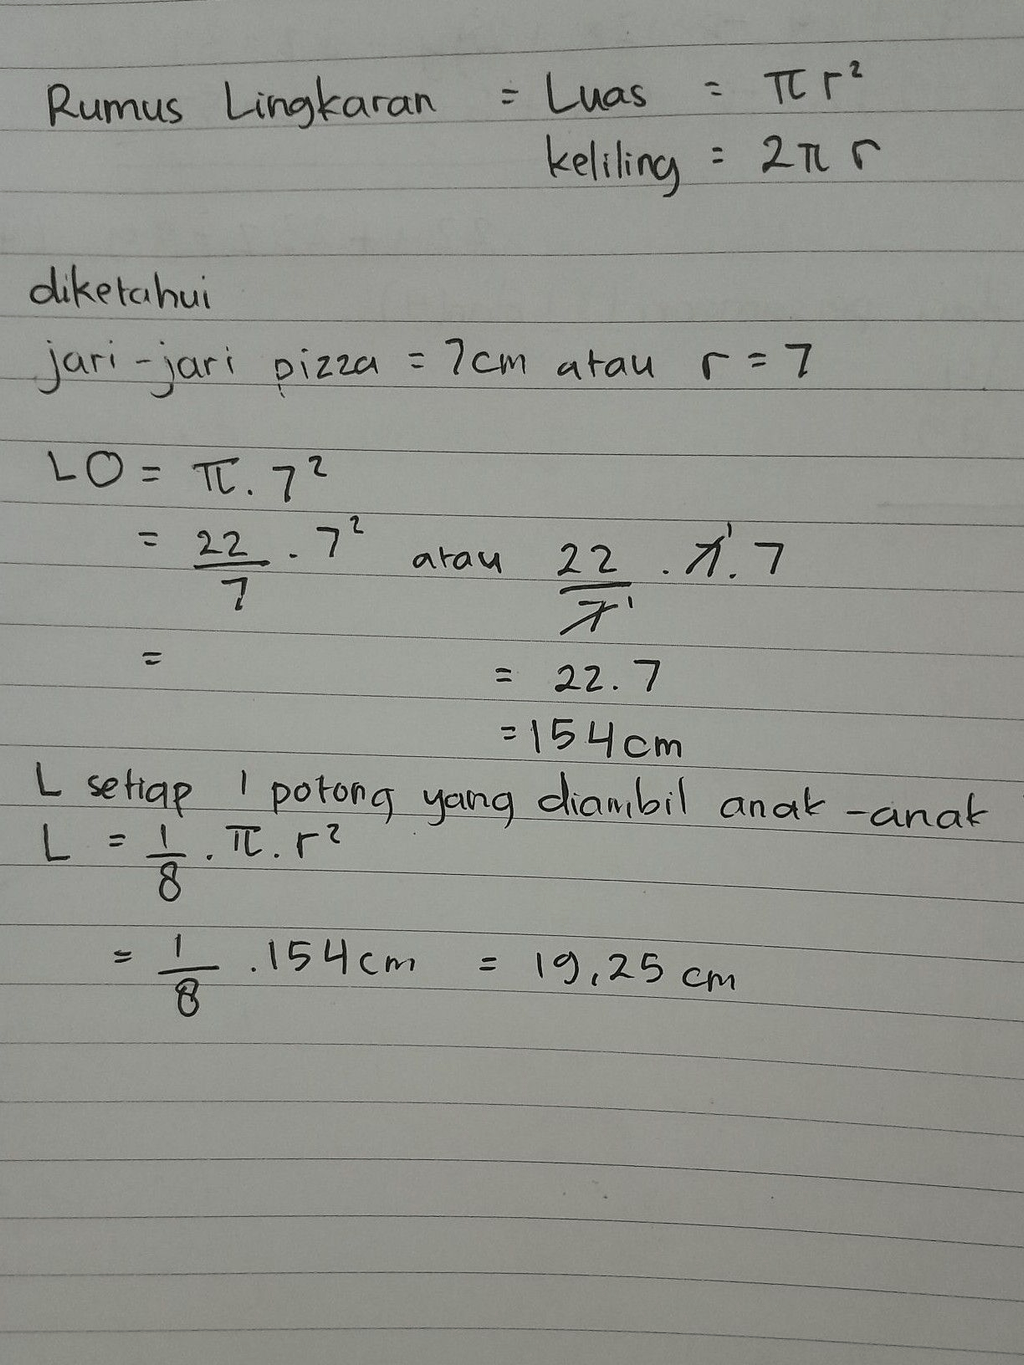 Rumus Lingkaran = Luas = π r²
keliling = 2π r
diketahui
jari-jari pizza = 7cm atau r = 7
LO = π . 7²
= 22/7 . 7² atau 22/7¹ . 7¹ . 7
= = 22 . 7
= 154 cm
L setiap 1 potong yang diambil anak-anak
L = 1/8 . π . r²
= 1/8 . 154 cm = 19,25 cm